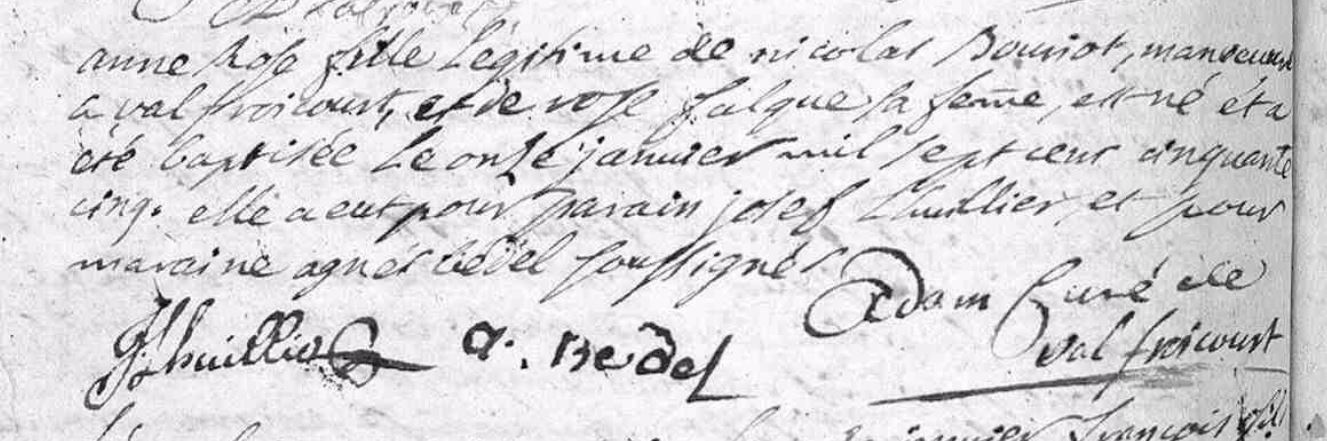 anne Rose fille Légitime de nicolas Bouriot, manoeuvre
a valfroicourt, et de rose falque sa feme, est né et a
eté baptisée Le onze janvier mil sept cent cinquante
cinq. elle a eut pour parain josef Lhuillier, et pour
maraine agnés bedel soussignés
Adam Curé de
valfroicourt
J Lhuillier a. Bedel
janvier françois fils